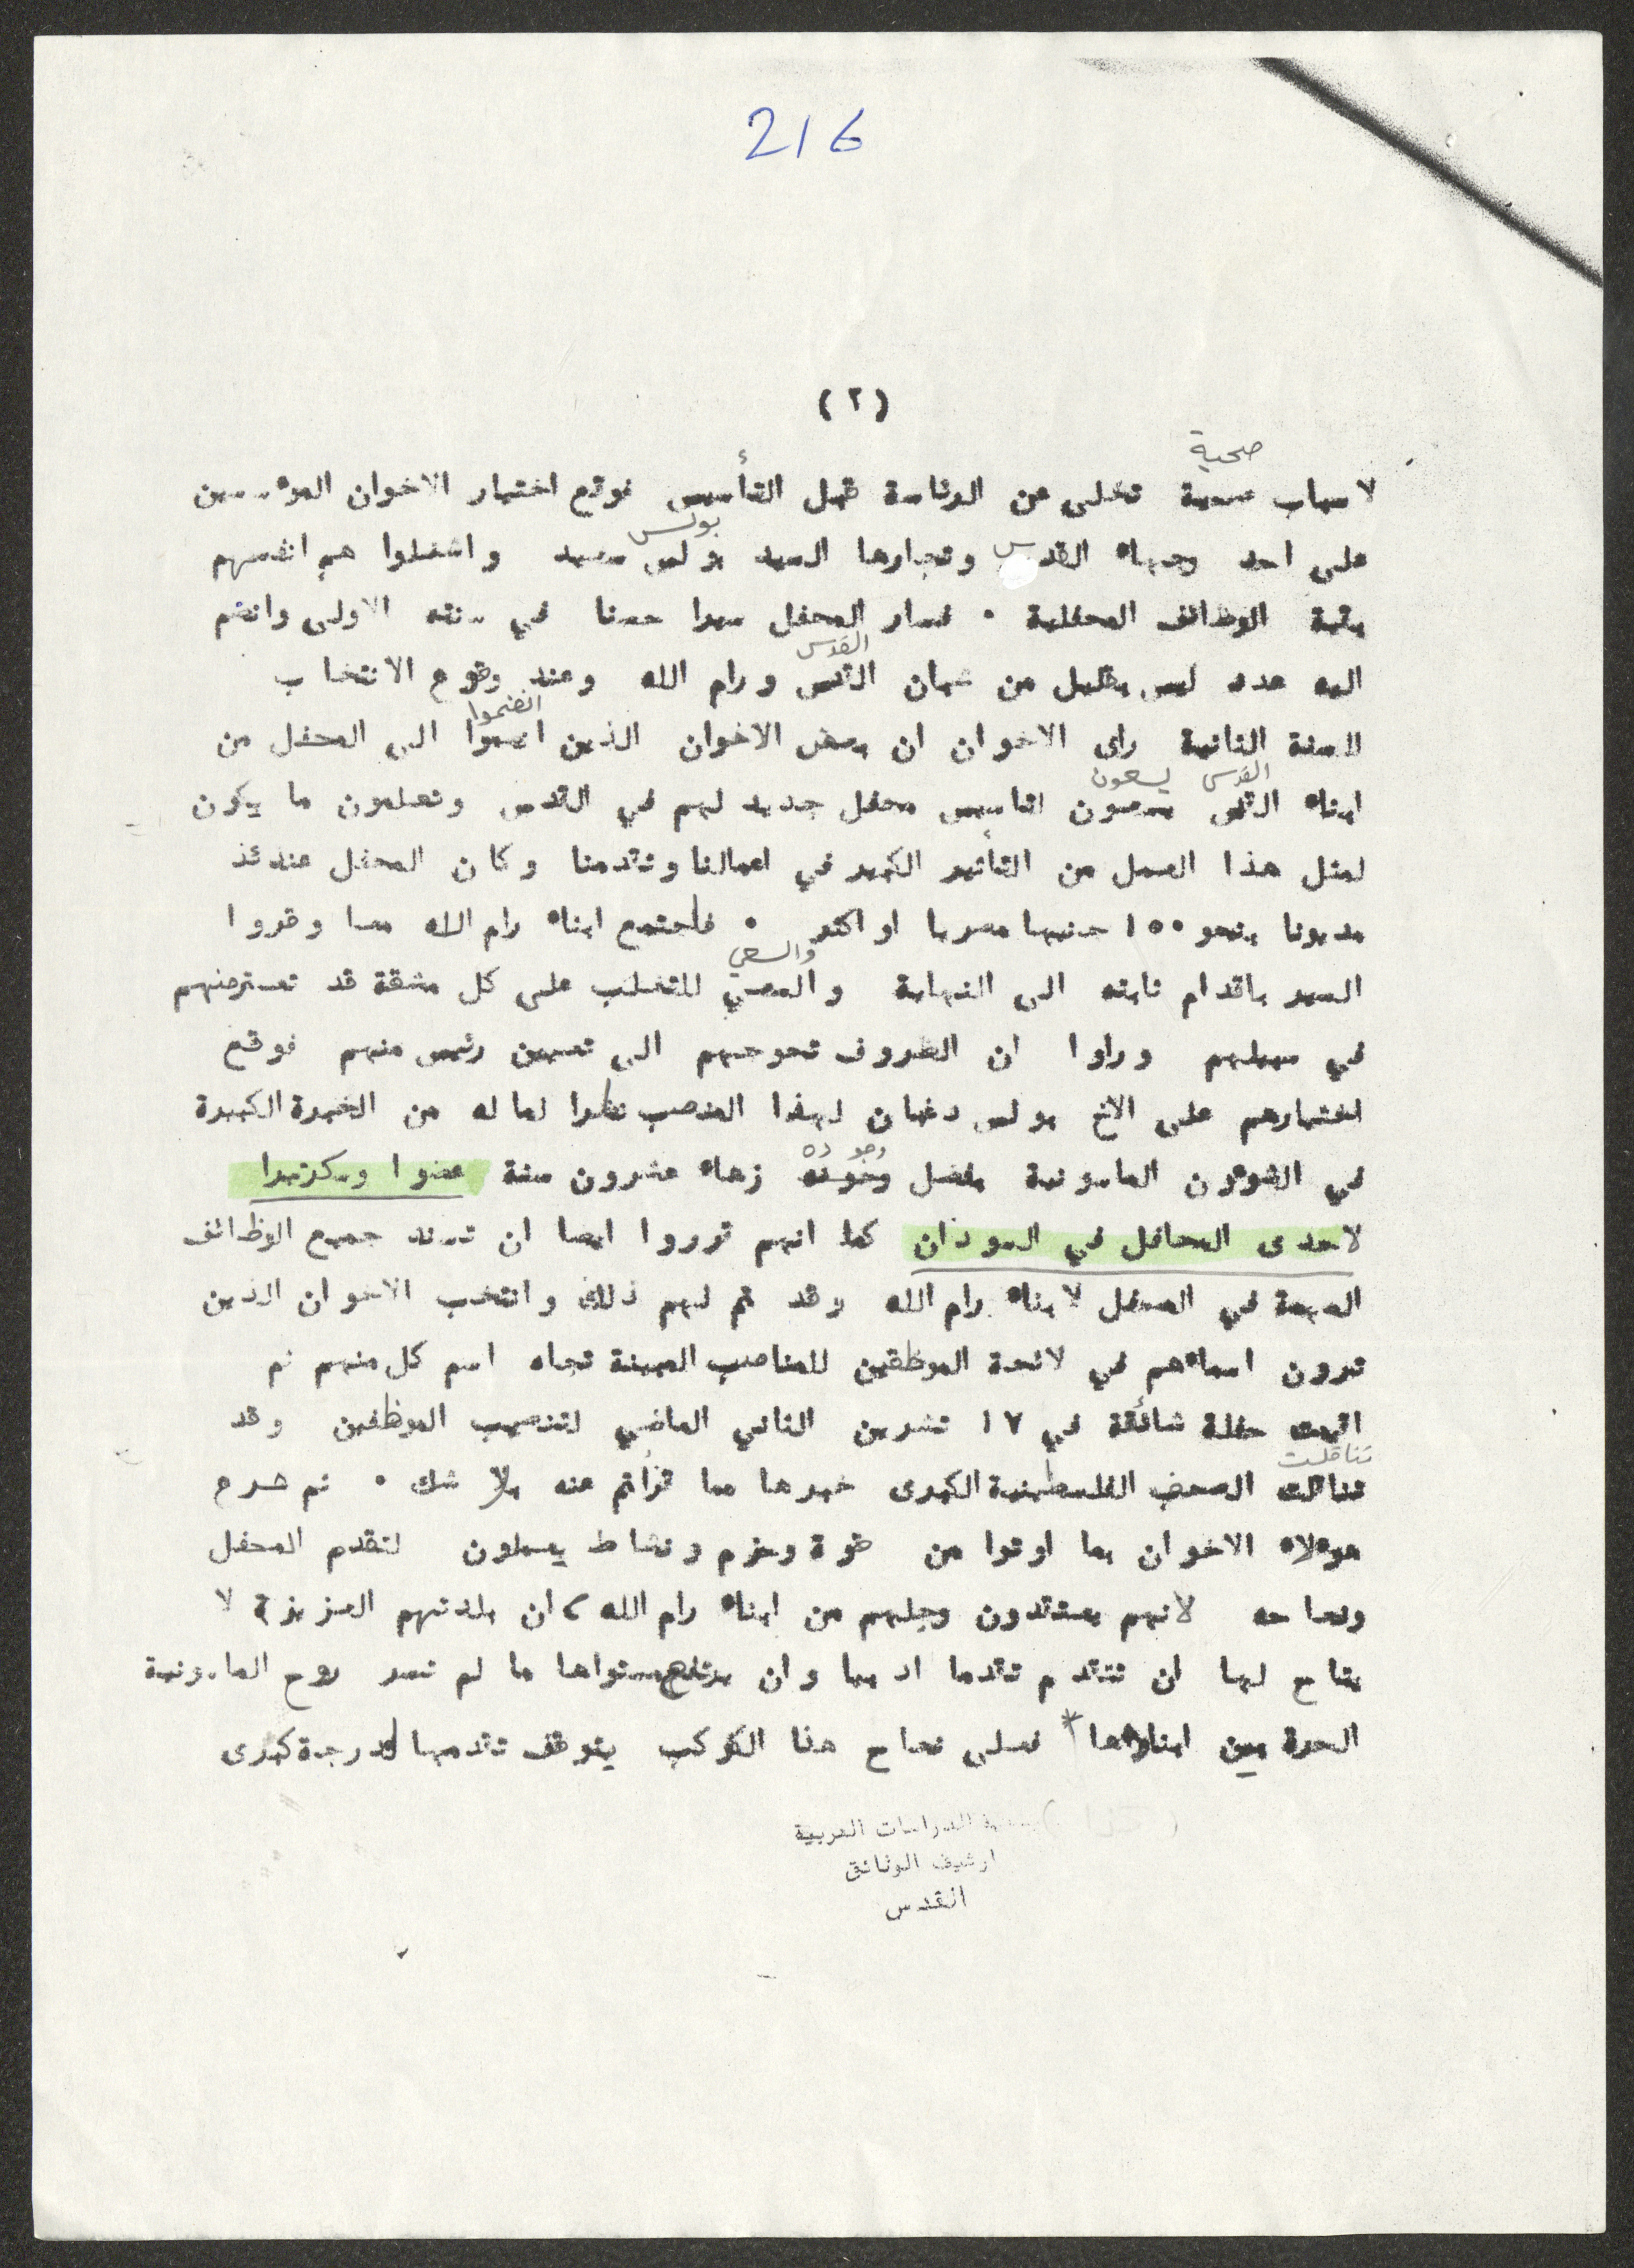 216
(٢)
صحية
لاسباب صحية تخلى عن الرئاسة قبل التأسيس فوقع اختيار الاخوان الموءسسين
بولس
على احد وجهاء القدس وتجارها السيد بولس سعيد واشغلوا هم انفسهم
بقية الوظائف المحفلية ٠ فسار المحفل سيرا حسنا في سنته الاولى وانضم
القدس
اليه عدد ليس بقليل من شبان القدس ورام الله وعند وقوع الانتخاب
انضموا
للسنة الثانية راى الاخوان ان بعض الاخوان الذين انضموا الى المحفل من
القدس يسعون
ابناء القدس يسعون لتاسيس محفل جديد لهم في القدس وتعلمون ما يكون
لمثل هذا العمل من التأثير الكبير في اعمالنا وتقدمنا وكان المحفل عندئذ
مديونا بنحو ١٥٠ جنيها مصريا او اكثر ٠ فاجتمع ابناء رام الله معا وقرروا
والسعي
السير باقدام ثابته الى النهاية والسعي للتغلب على كل مشقة قد تعترضهم
في سبيلهم وراوا ان الظروف تحوجهم الى تعيين رئيس منهم فوقع
اختيارهم على الاخ بولس دغبان لهذا المنصب نظرا لما له من الخبرة الكبيرة
وجوده
في الشوءون الماسونية بفضل وجوده زهاء عشرون سنة عضوا وسكرتيرا
لاحدى المحافل في السودان كما انهم قرروا ايضا ان تسند جميع الوظائف
المهمة في المحفل لابناء رام الله وقد تم لهم ذلك وانتخب الاخوان الذين
ترون اسماءهم في لائحة الموظفين للمناصب المبينة تجاه اسم كل منهم ثم
اقيمت حفلة شائقة في ١٧ تشرين الثاني الماضي لتنصيب الموظفين وقد
تناقلت
تناقلت الصحف الفلسطينية الكبرى خبرها مما قرأتم عنه بلا شك ٠ ثم شرع
هوءلاء الاخوان بما اوتوا من قوة وحزم ونشاط يعملون لتقدم المحفل
ونجاحه لانهم يعتقدون وجلهم من ابناء رام الله، ان بلدتهم العزيزة لا
يتاح لها ان تتقدم تقدما ادبيا وان يرتفع مستواها ما لم تسر روح الماسونية
الحرة بين ابناءها * فعلى نجاح هذا الكوكب يتوقف تقدمها لدرجة كبرى
جمعية الدراسات العربية
ارشيف الوثائق
القدس